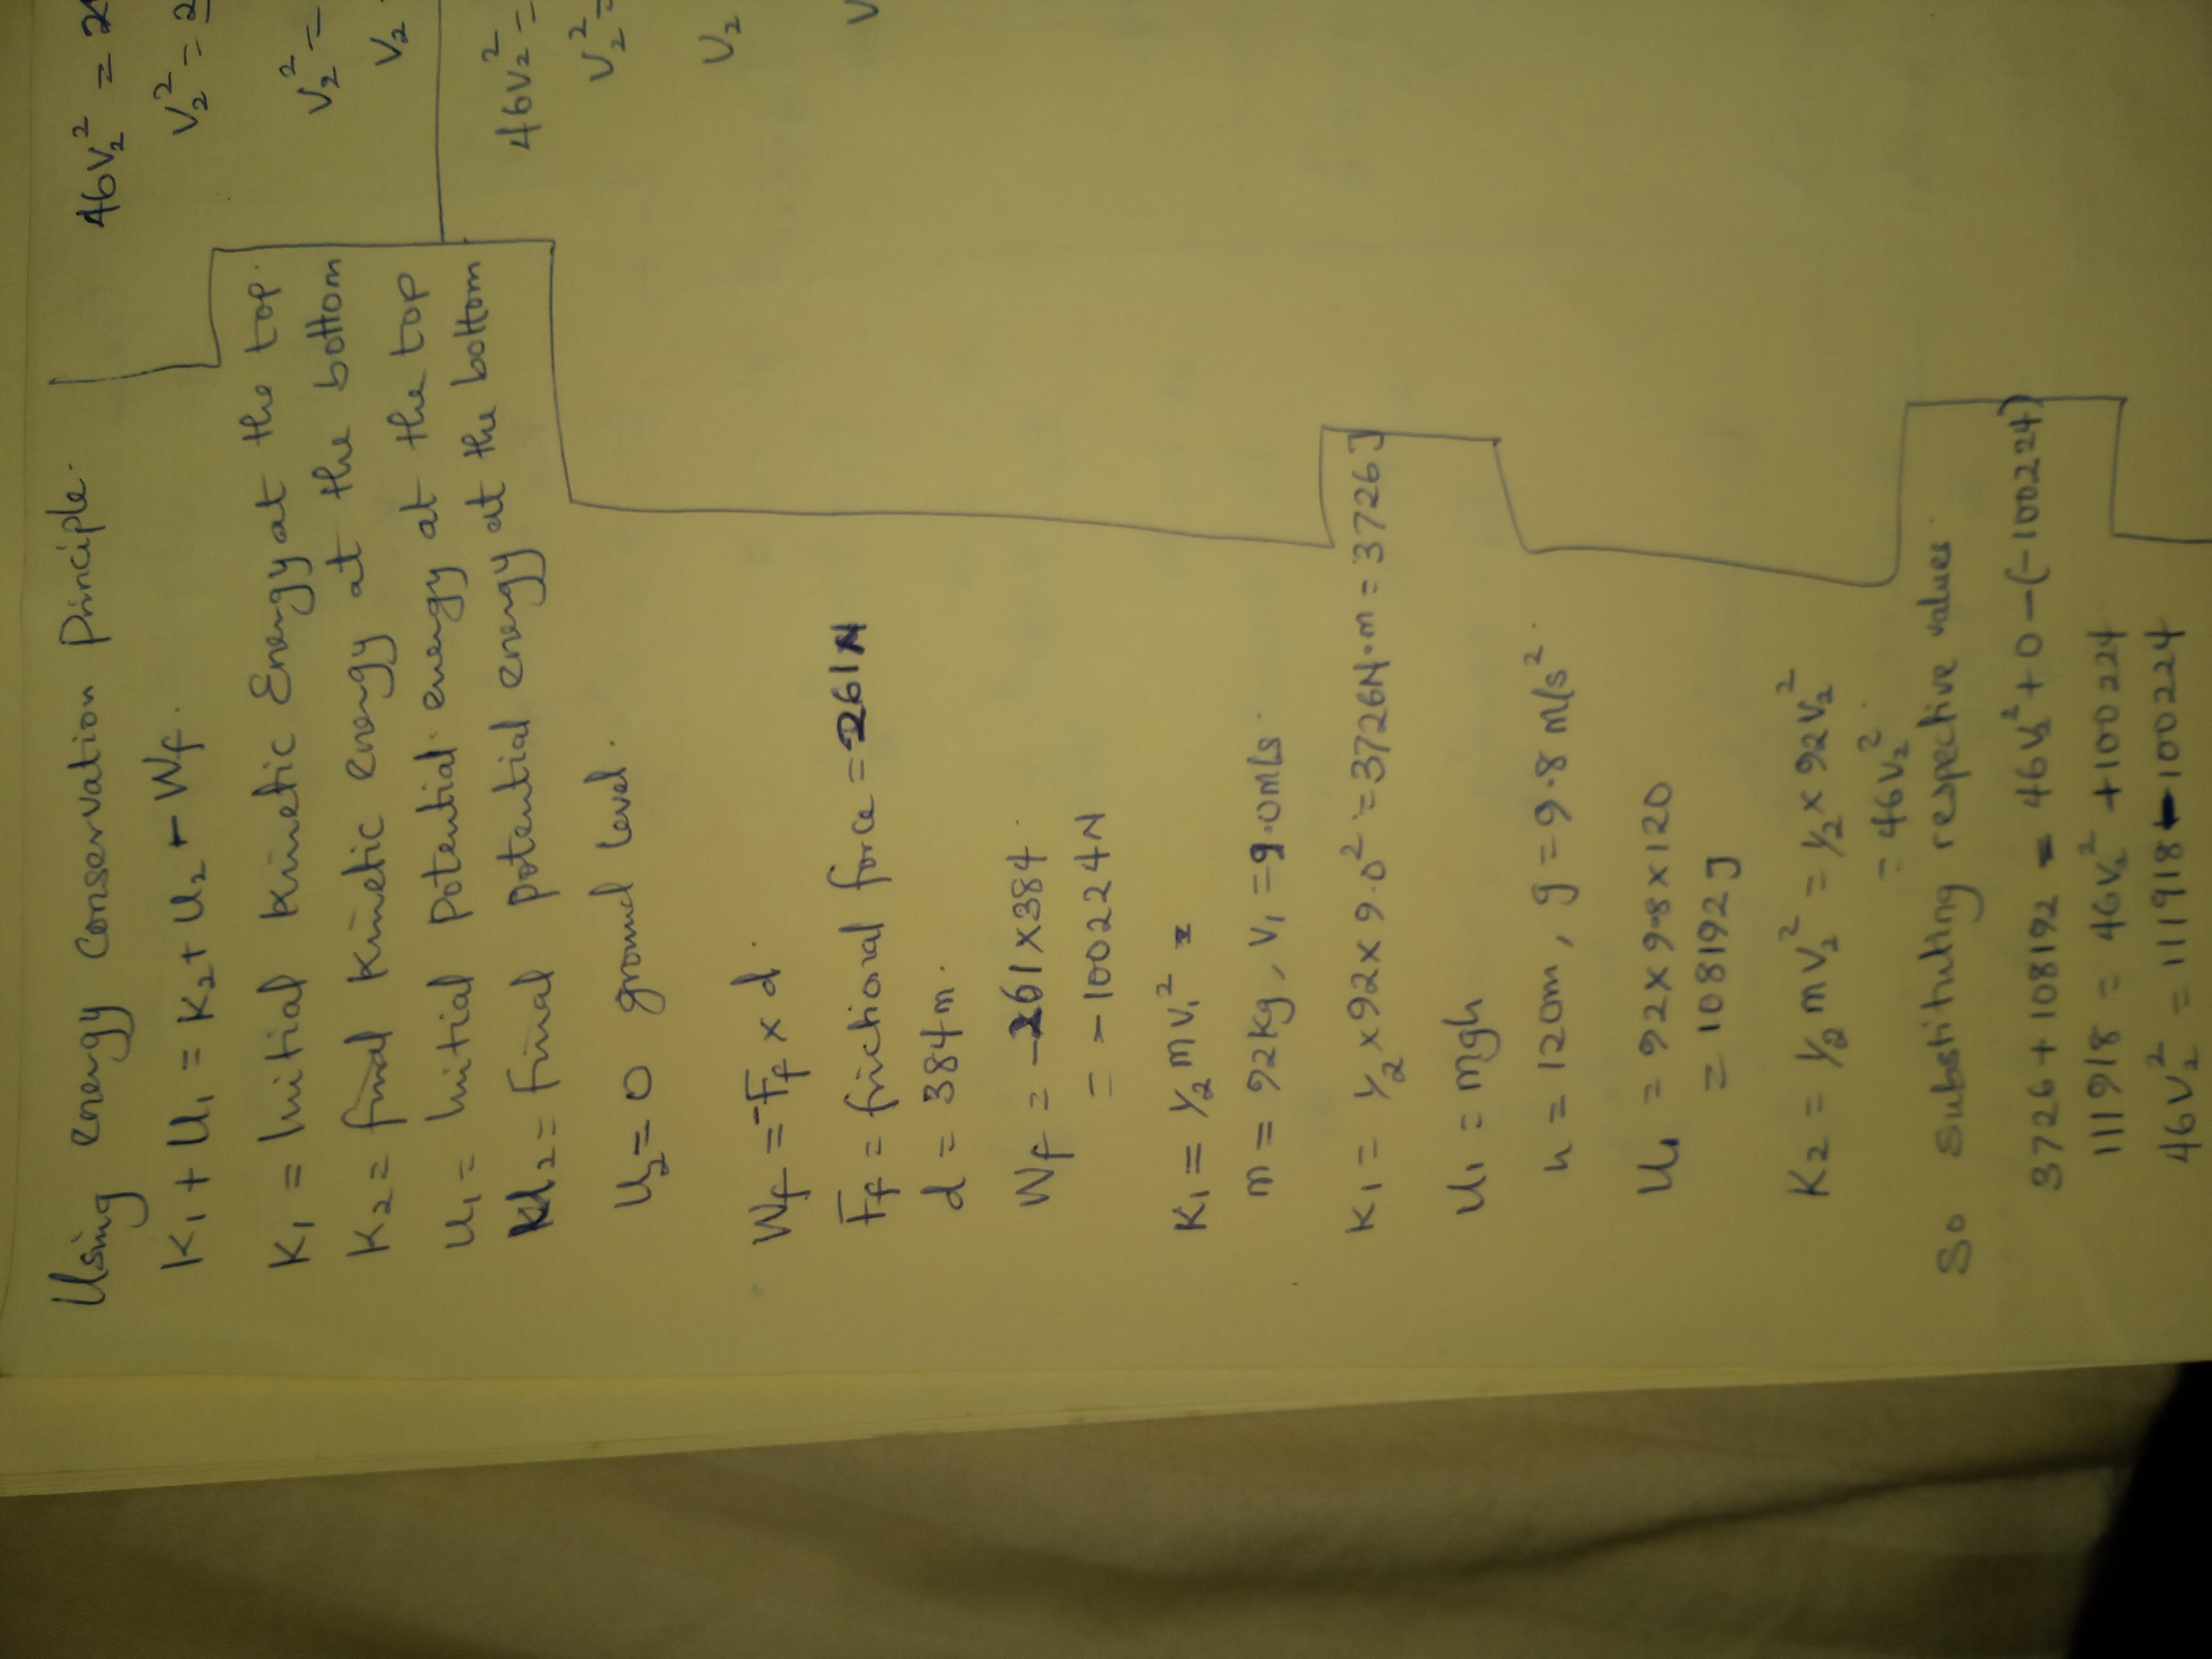 Using energy conservation Principle.
K₁ + U₁ = K₂ + U₂ - Wf.
K₁ = Initial kinetic Energy at the top.
K₂ = final kinetic energy at the bottom
U₁ = Initial potential energy at the top
U₂ = final potential energy at the bottom
U₂ = 0 ground level.
Wf = -Ff × d.
Ff = frictional force = 261N
d = 384m.
Wf = -261 × 384.
= -100224N
K₁ = ½ mv₁² =
m = 92kg, v₁ = 9.0m/s.
K₁ = ½ × 92 × 9.0² = 3726N.m = 3726J
U₁ = mgh
h = 120m, g = 9.8 m/s².
U₁ = 92 × 9.8 × 120
= 108192J
K₂ = ½ mv₂² = ½ × 92v₂²
= 46v₂².
So substituting respective values.
3726 + 108192 = 46v₂² + 0 - (-100224)
111918 = 46v₂² + 100224
46v₂² = 111918 - 100224
46v₂² =
v₂² = 2
v₂² =
v₂
46v₂² =
v₂² =
v₂